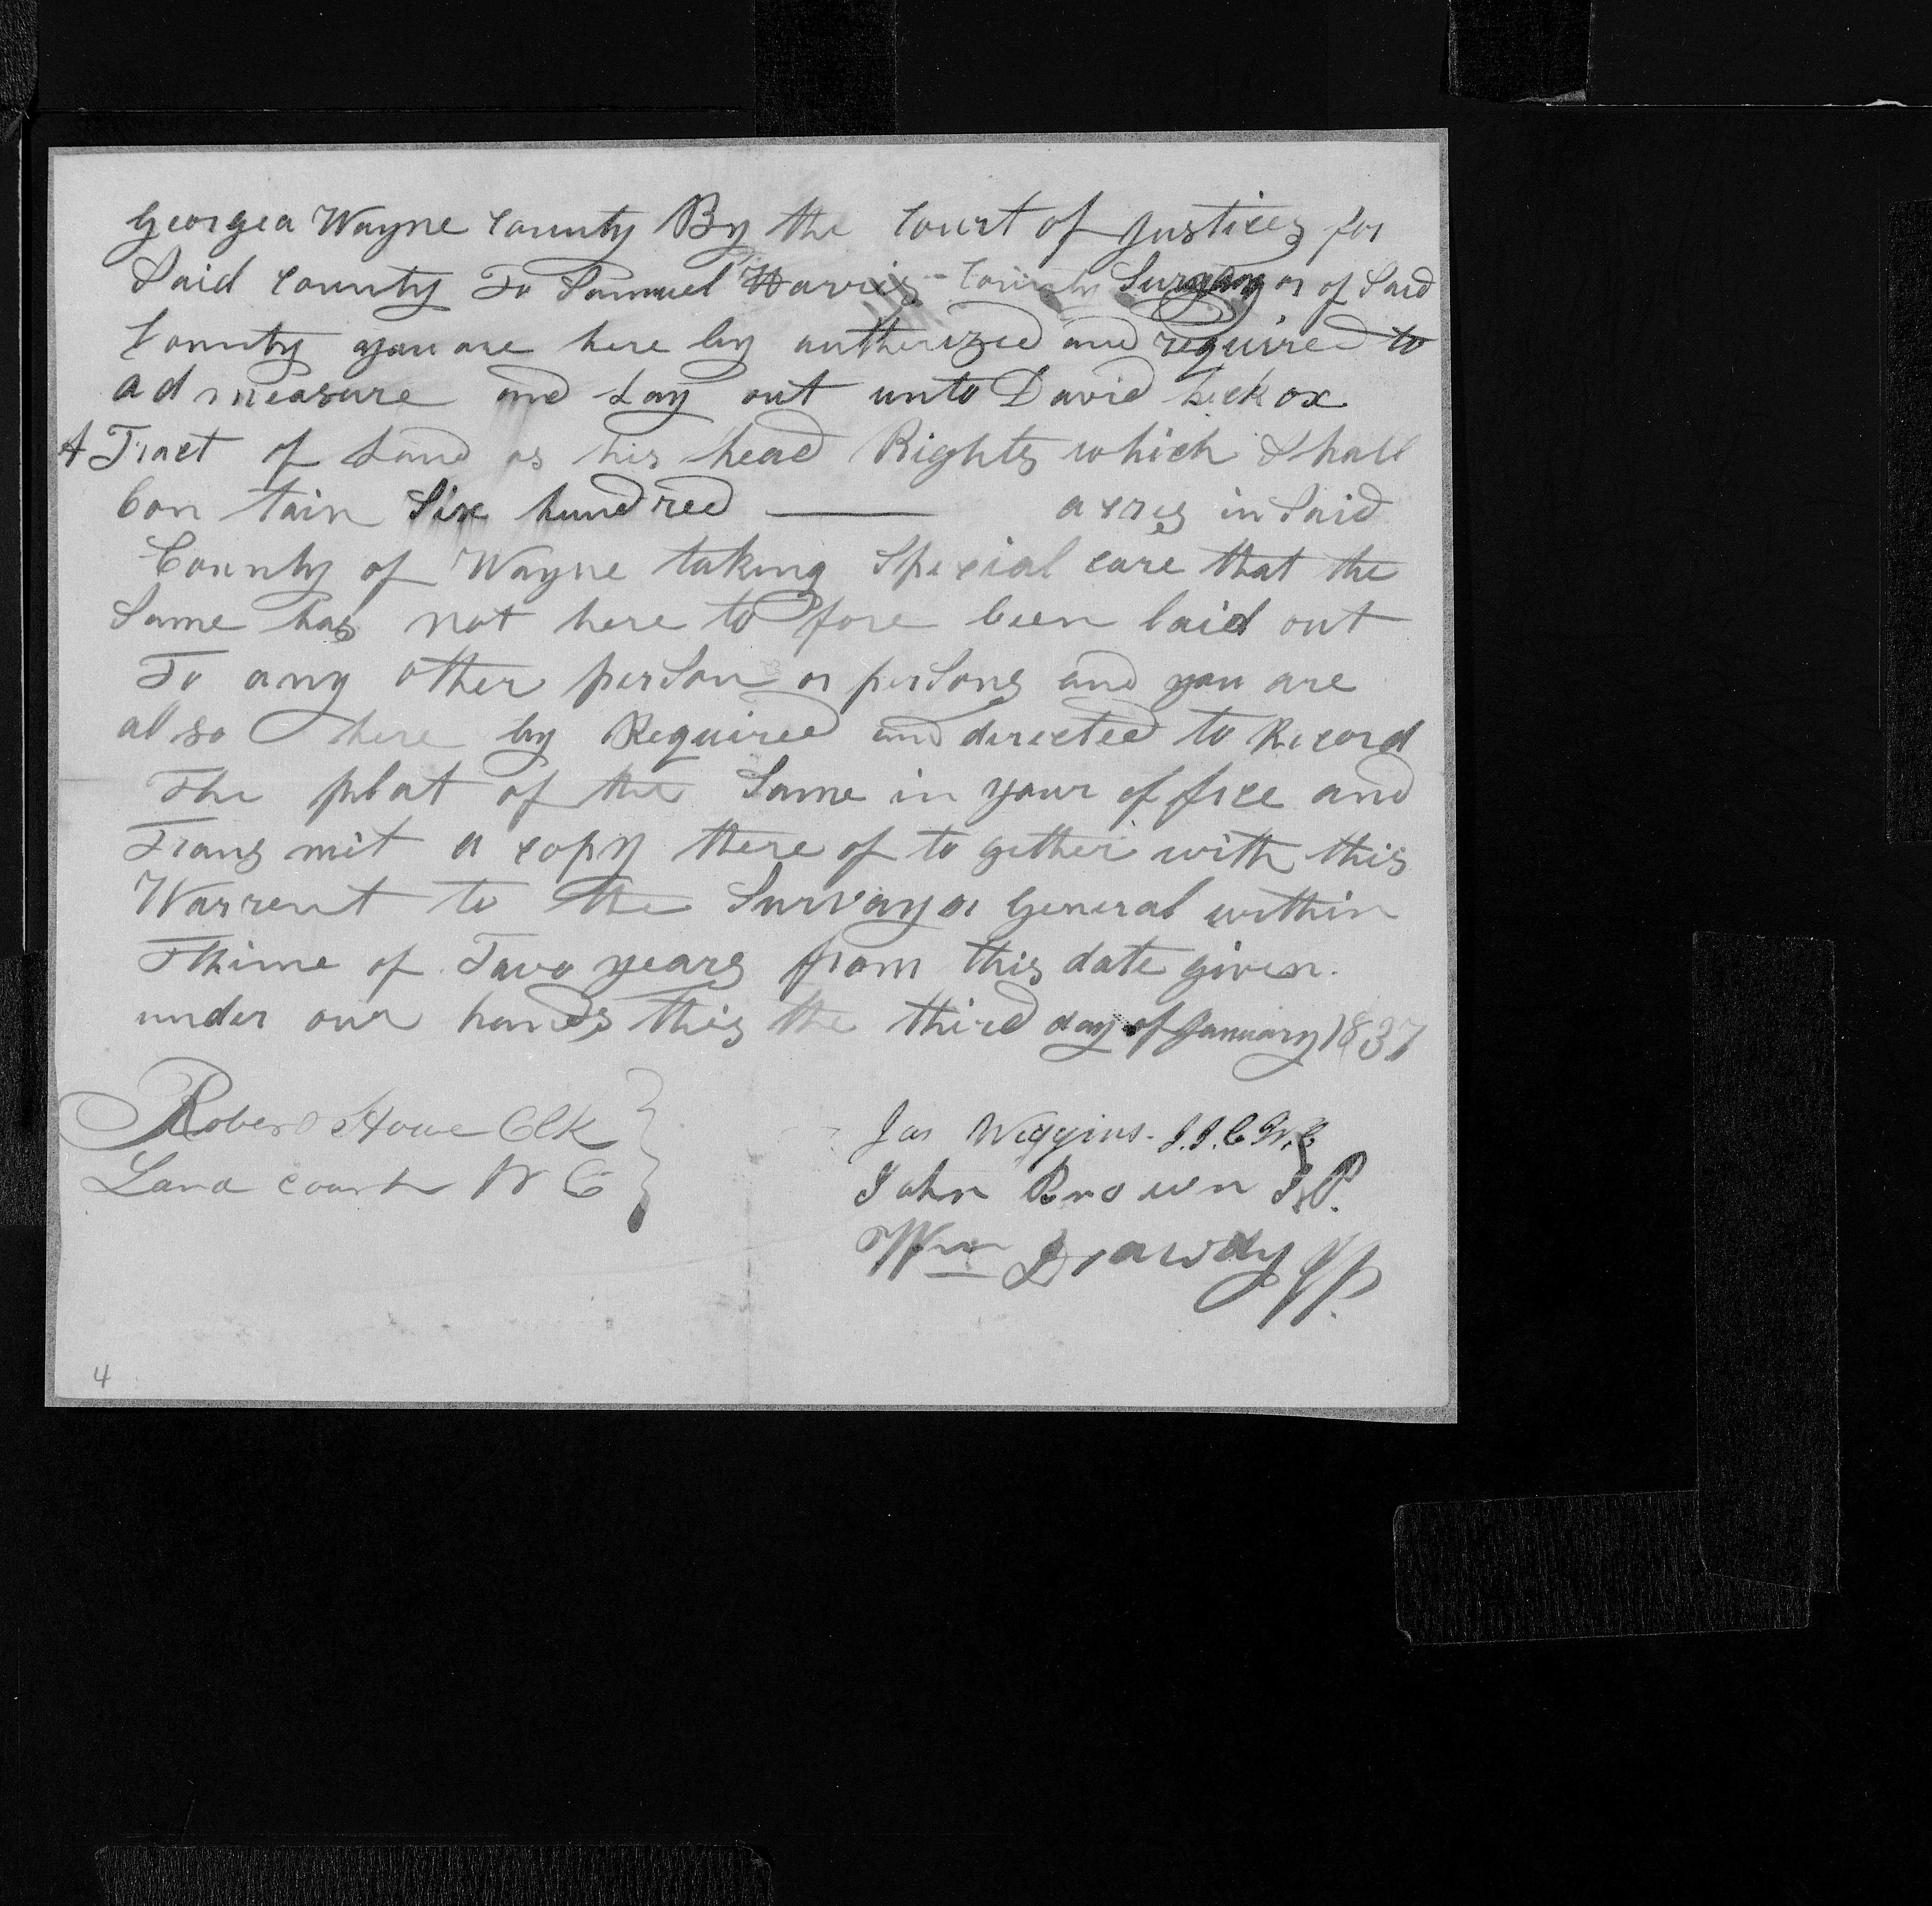 Georgea Wayne County By the Court of Justices for
Said County To Samuel Harris County Survayor of Said
County you are here by autherized and required to
ad measure and Lay out unto David Lickox
A Tract of Land as his head Rights which Shall
Con tain Six hundred ——— acres in Said
County of Wayne taking Special care that the
Same has not here to fore been laid out
To any other person or persons and you are
al so here by Required and derected to Record
The plat of the Same in your of fice and
Trans mit a copy there of to gether with this
Warrent to the Survayor General within
Thime of Two years from this date given.
under our hands this the third day of January 1837
Robert Howe Clk
Land court W C
Jas Wiggins. J.I.C.W.C
John Brown J.P.
Wm Drawdy JP.
4